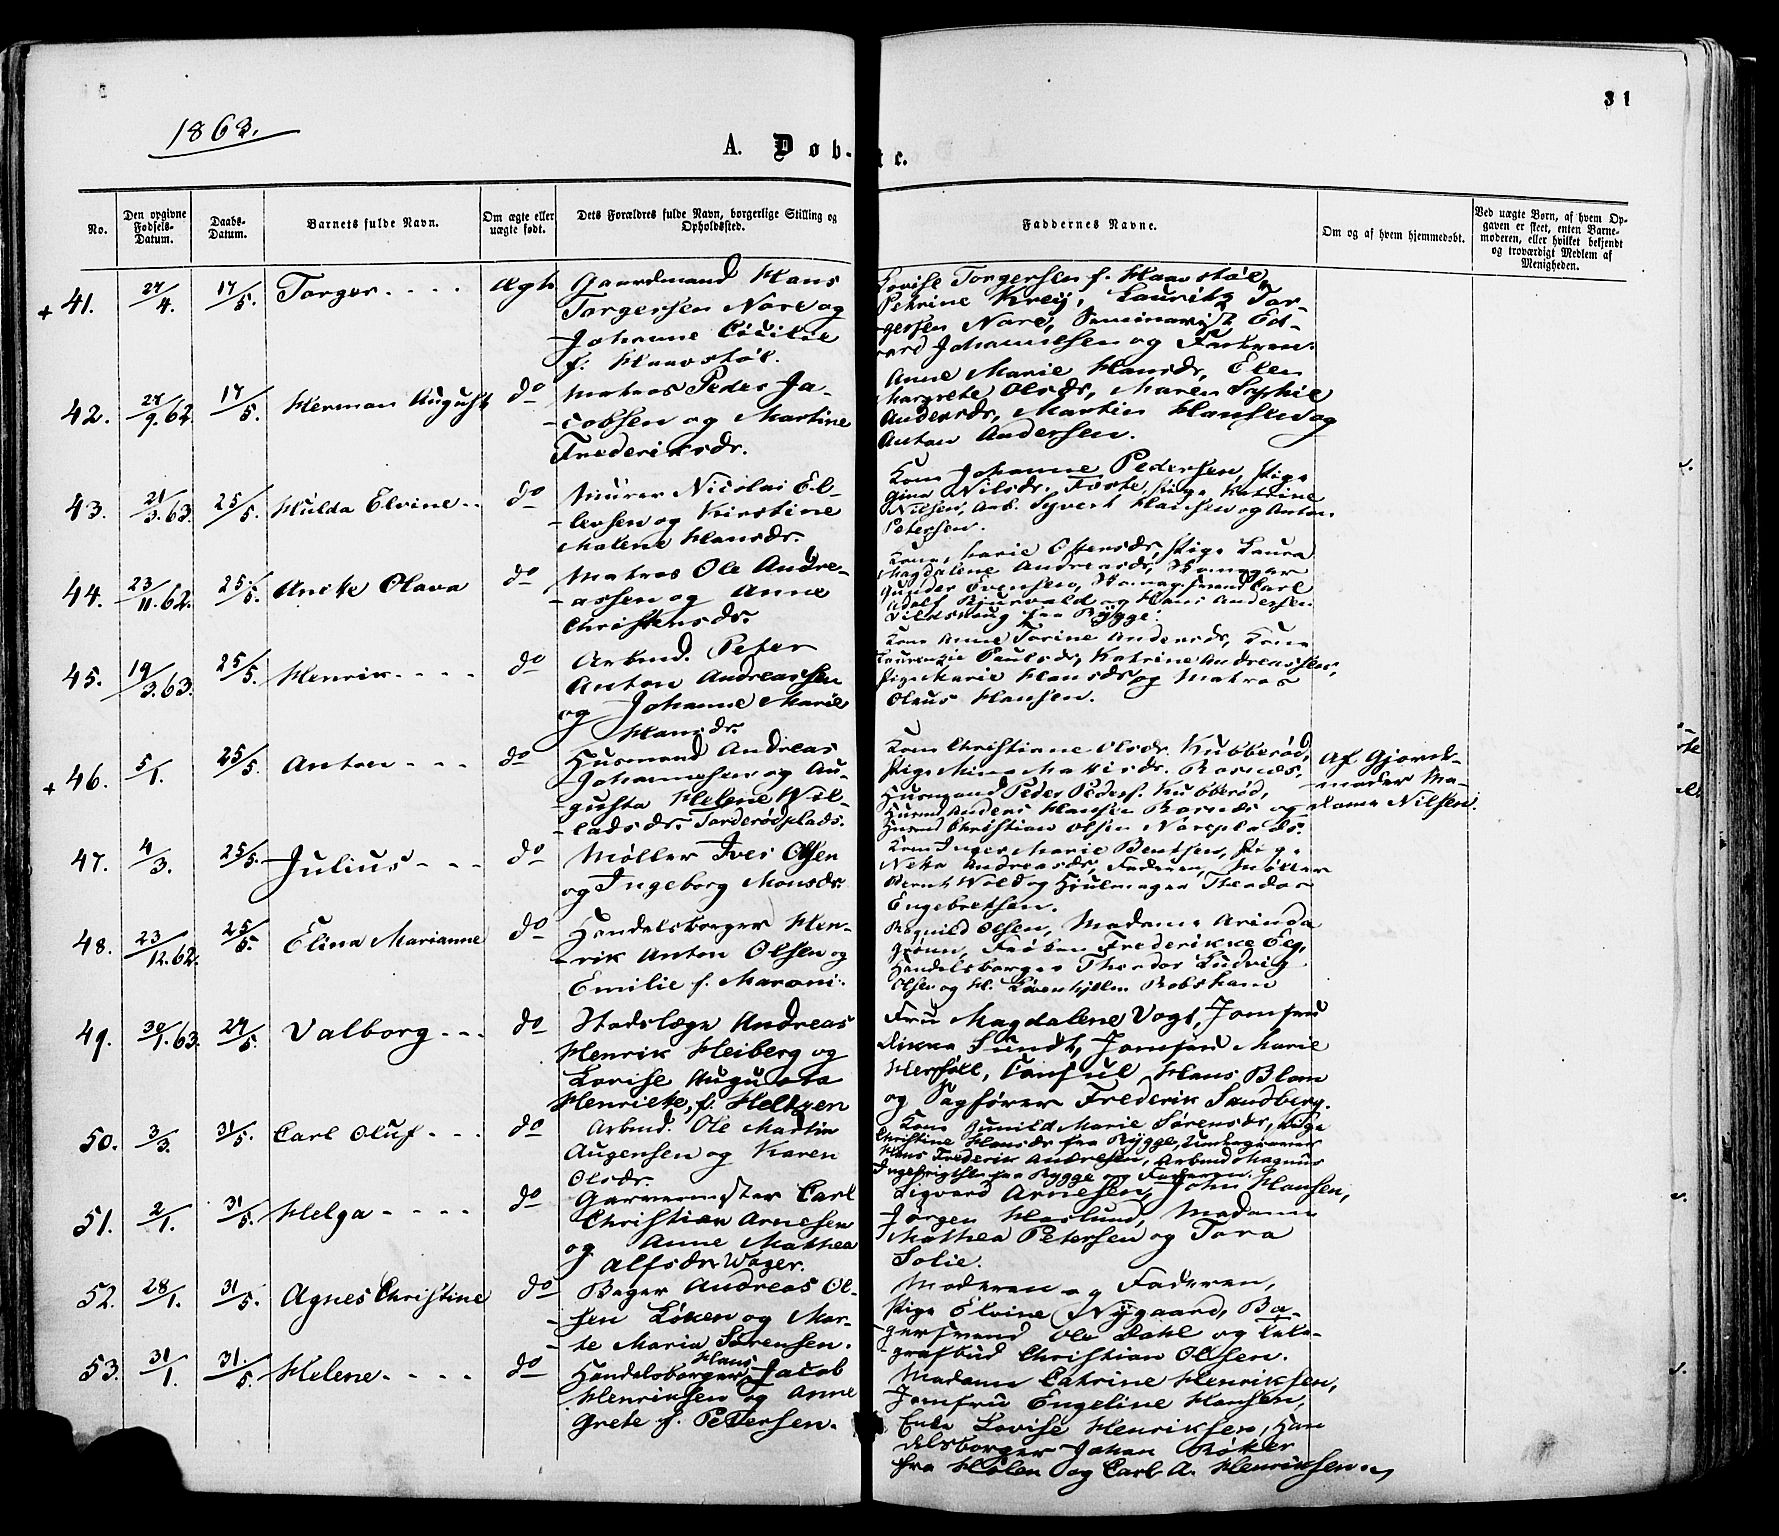 31
1863.
A. Døbte.
No.
Den opgivne Fødsels-Datum.
Daabs-Datum.
Barnets fulde Navn.
Om ægte eller uægte født.
Dets Forældres fulde Navn, borgerlige Stilling og Opholdssted.
Faddernes Navne.
Om og af hvem hjemmedøbt.
Ved uægte Børn, af hvem Opgaven er skeet, enten Barnemoderen, eller hvilket bekjendt og troværdigt Medlem af Menigheden.
+ 41. 27/4. 17/5. Torger. ægte
Gaardmand Hans
Torgersen Nore og
Johanne Cicilie
f. Haavstøl.
Lovise Torgersen f. Haavstøl,
Petrine Kreij, Lauritz Tor-
gersen Nore, Seminarist Ed-
vard Johannesen og Faderen.
42. 27/9.62. 17/5. Herman August do
Matros Peder Ja-
cobsen og Martine
Frederiksdr.
Anne Marie Hansdr, Elen
Margrete Olsdr, Maren Sophie
Andersdr, Martin Hansen og
Anton Andersen.
43. 21/3.63. 25/5. Hulda Elvine do
Murer Nicolai El-
levsen og Kirstine
Malene Hansdr.
Kone Johanne Pedersen, Pige
Gina Nilsdr. Torste, Pige Katrine
Nilsen, Arb. Syvert Hansen og Anton
Petersen.
44. 23/11.62. 25/5. Anike Olava do
Matros Ole Andre-
assen og Anne
Christensdr.
Kone Marie Olsensdr, Pige Laura
Magdalene Andreasdr,
Gunder Evensen, Carl
Adolf og Hans Andersen
fra Rygge.
45. 19/3.63. 25/5. Henrik do
Arbmd. Peter
Anton Andreassen
og Johanne Marie
Hansdr.
Kone Anne Torine Andersdr, Kone
Laurenzie Paulsdr, Katrine Andreasdr,
Pige Marie Hansdr og Matros
Olaus Hansen.
+ 46. 5/1. 25/5. Anton do
Husmand Andreas
Johannesen og Au-
gusta Helene Wil-
ladsdr. Torderødplads.
Kone Christiane Olsdr. Kubberød,
Pige Mina Mattisdr. Rosnæs,
Husmand Peder Peders. Kubberød,
Husmd Anders Hansen Rosnæs og
Husmd Christian Olsen Noreplads.
Af Gjord-
moder Ma-
dame Nilsen.
47. 4/3. 25/5. Julius do
Møller Iver Olsen
og Ingeborg Monsdr.
Kone Inger Marie Bentsen, Pige
Neka Andreasdr, Faderen, Møller
Bernt Wold og Hjulmager Theodor
Engebretsen.
48. 23/12.62. 25/5. Elina Marianne do
Handelsborger Hen-
rik Anton Olsen og
Emilie f. Maroni.
Ragnild Olsen, Madame Arinda
Grønn, Frøken Frederikke Eeg,
Handelsborger Theodor Ludvig
Olsen og H. Løvenhjelm Robsham
49. 30/1.63. 27/5. Valborg do
Stadslæge Andreas
Henrik Heiberg og
Lovise Augusta
Henriete, f. Heltzen
Fru Magdalene Vogt, Jomfru
Rikka Sundt, Jomfru Marie
Hersøll, Consul Hans Blom
og Sagfører Frederik Sandberg.
50. 3/3. 31/5. Carl Oluf do
Arbmd. Ole Martin
Augensen og Karen
Olsdr.
Kone Gunild Marie Sørensdr, Pige
Christine Hansdr fra Rygge,
Hans Frederik Andresen, Arbmd Magnus
Ingebrigtsen fra Rygge og Faderen.
51. 2/1. 31/5. Helga do
Garvermester Carl
Christian Arnesen
og Anne Mathea
Alfsdr Wager.
Sigvard Arnesen, John Hansen,
Jørgen Haslund, Madame
Mathea Petersen og Tora
Solie.
52. 28/1. 31/5. Agnes Christine do
Bager Andreas Ol-
sen Løken og Mar-
te Maria Sørensen.
Moderen og Faderen,
Pige Elvine Nygaard, Ba-
gersvend Ole Dahl og Tele-
grafbud Christian Olsen.
53. 31/1. 31/5. Helene do
Handelsborger Hans Jacob
Henriksen og Anne
Grete f. Petersen.
Madame Catrine Henriksen,
Jomfru Engeline Hansen,
Enke Lovise Henriksen, Han
delsborger Johan Røker
fra Hølen og Carl A. Henriksen.